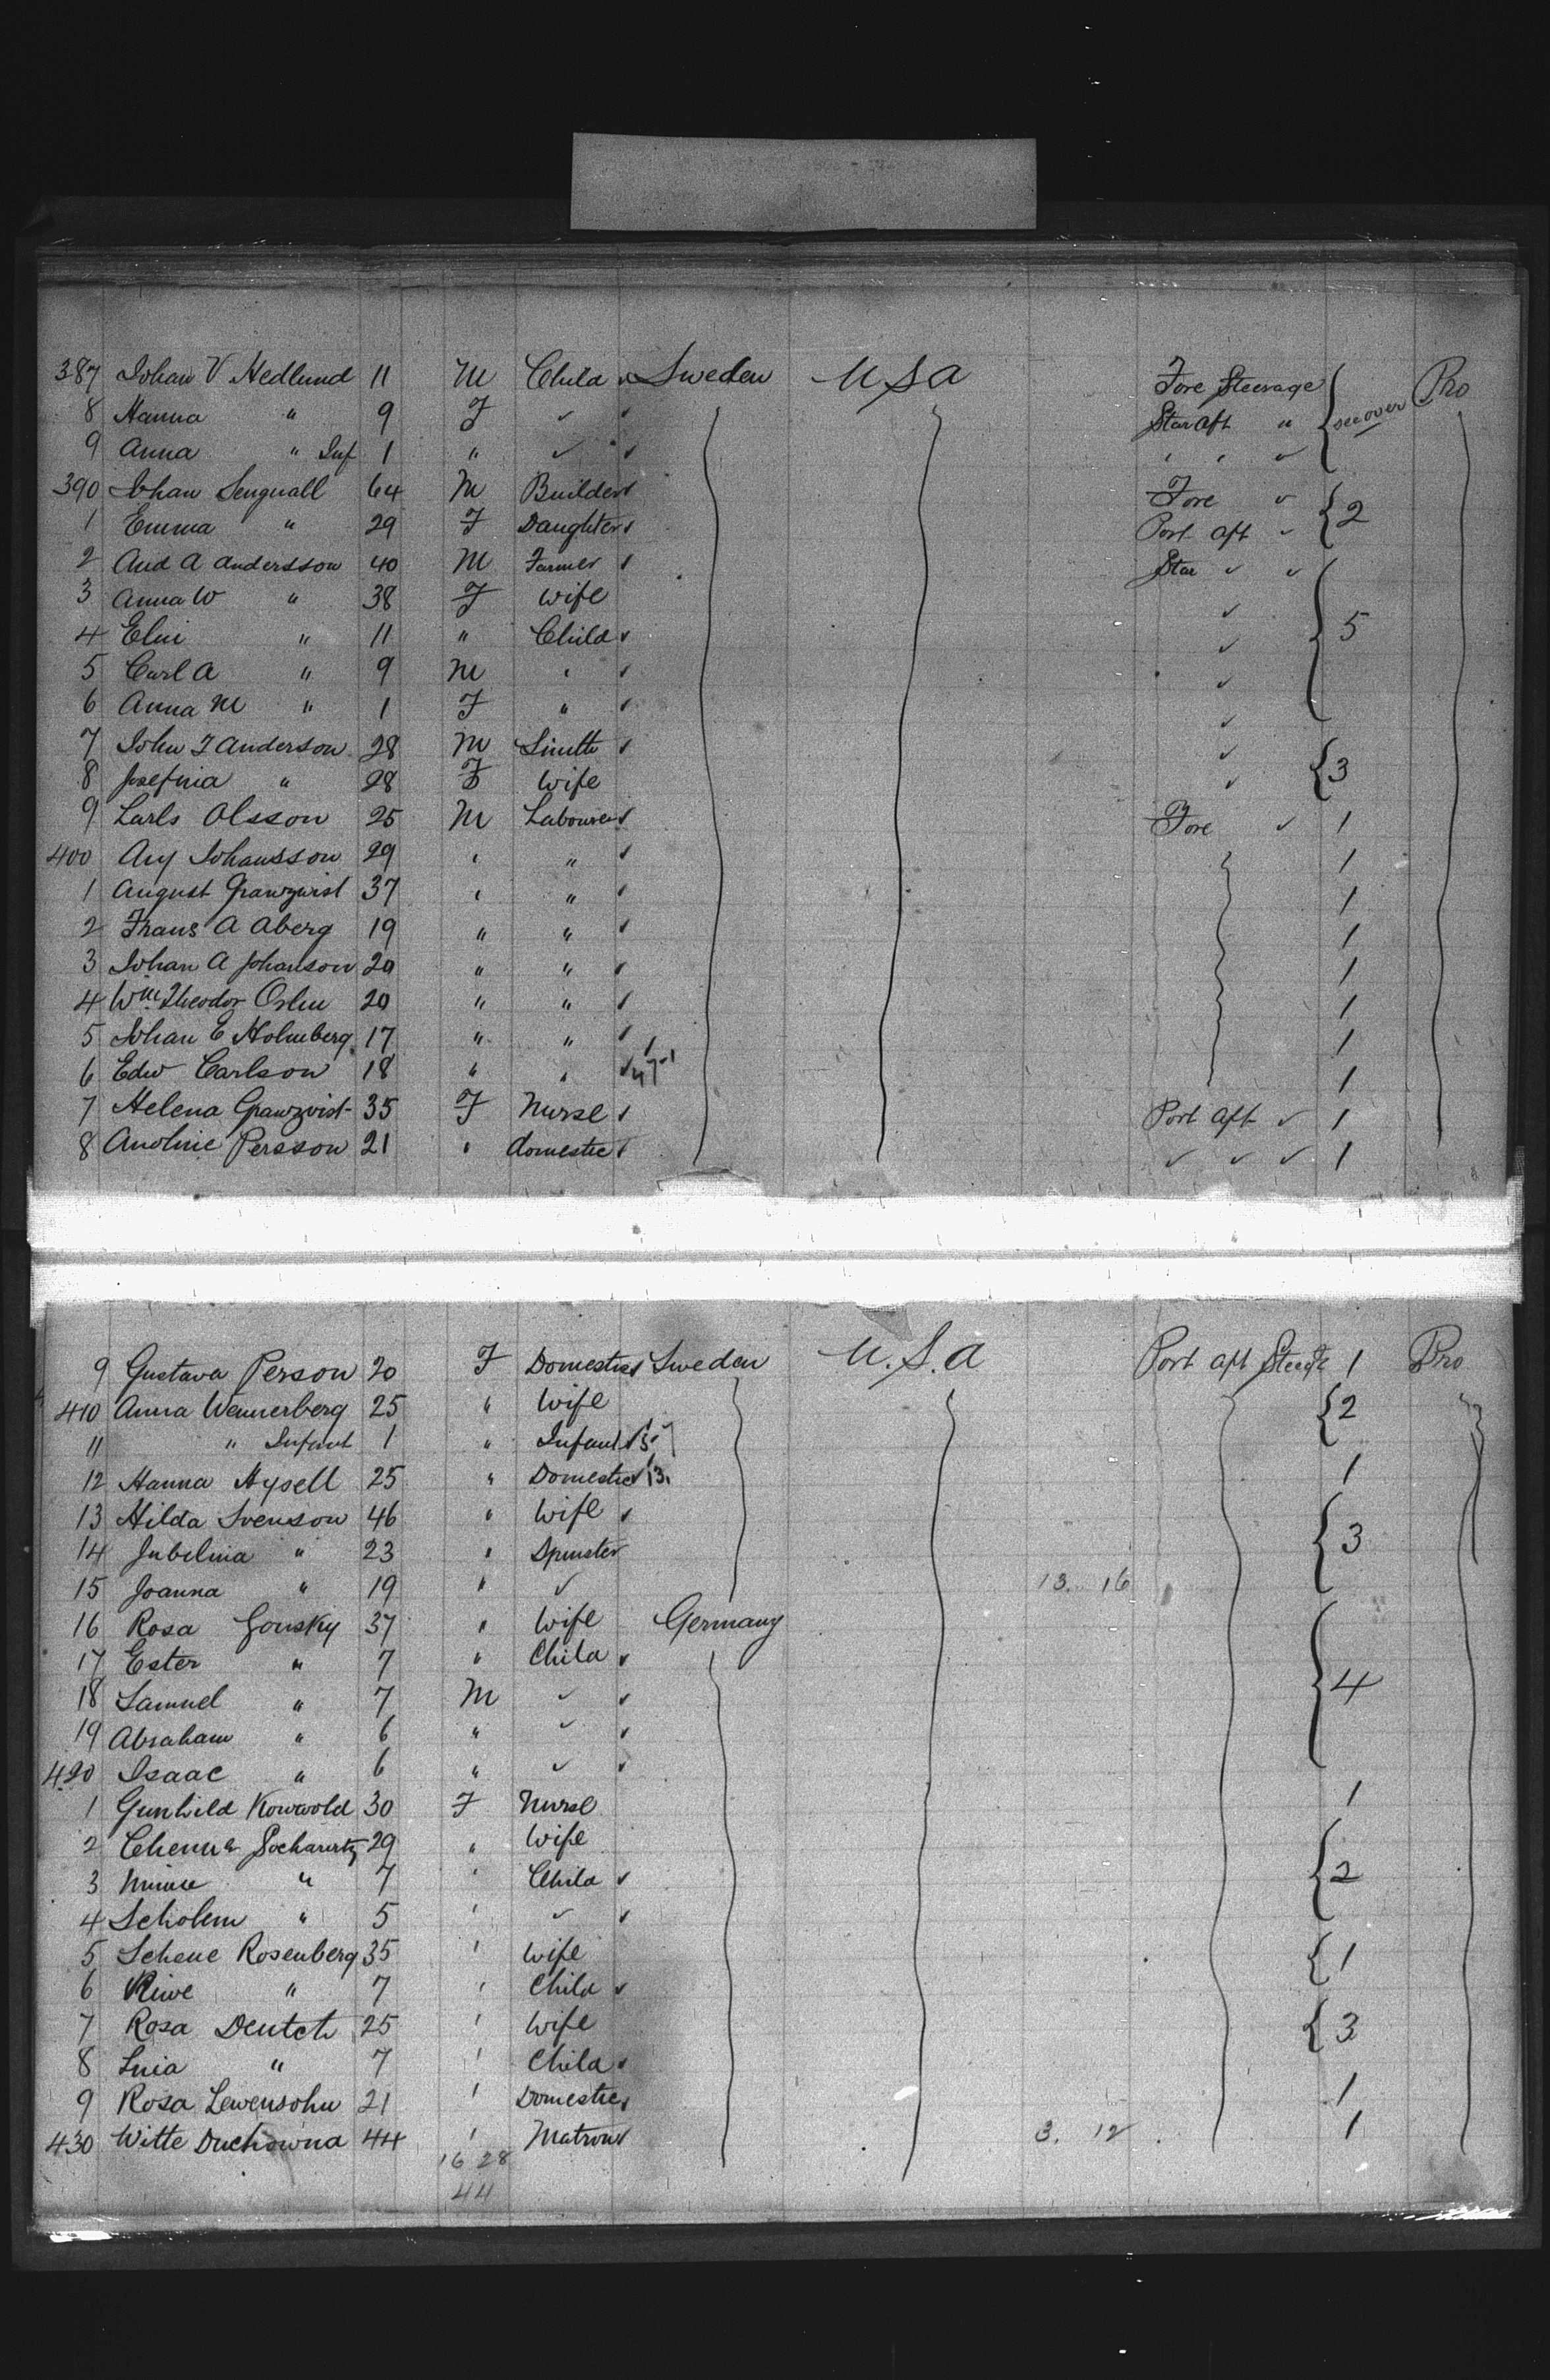 387 Johan V Hedlund 11 M Child ✓ Sweden U S A Fore Steerage see over Pro
8 Hanna " 9 F ✓ ✓ Star Aft "
9 Anna " Inf 1 " ✓ ✓ ' ' ✓
390 Johan Senguall 64 M Builder ✓ Fore ✓ 2
1 Emma " 29 F Daughter ✓ Port aft ✓
2 Aud A Andersson 40 M Farmer ✓ Star ✓ ✓
3 Anna W " 38 F Wife ✓ 5
4 Elin " 11 " Child ✓ ✓
5 Carl A " 9 M ' ✓ ✓
6 Anna M " 1 F " ✓ ✓
7 John F Anderson 28 M Smith ✓ ✓ 3
8 Josefina " 28 F Wife ✓
9 Larls Olsson 25 M Labourer ✓ Fore ✓ 1
400 Aug Johansson 29 ' " ✓ 1
1 August Granzwist 37 ' " ✓ 1
2 Frans A Aberg 19 " " ✓ 1
3 Johan A Johanson 20 " " ✓ 1
4 Wm Theodor 20 " " ✓ 1
5 Johan E Holmberg 17 " " ✓ 1
6 Edw Carlson 18 " " ✓ 1
7 Helena Granzvist 35 F Nurse ✓ Port aft ✓ 1
8 Andline Persson 21 ' Domestic ✓ ✓ ✓ ✓ 1
9 Gustava Person 20 F Domestic ✓ Sweden U.S.A Port aft 1 Pro
410 Anna Wennerberg 25 " Wife 2
11 " Infant 1 " Infant ✓
12 Hanna Hysell 25 " Domestic ✓ 13. 1
13 Hilda Svenson 46 " Wife ✓ 3
14 Jubelina " 23 " Spinster
15 Joanna " 19 " ✓ 13. 16
16 Rosa Gonsky 37 " Wife Germany
17 Ester " 7 " Child ✓
18 Samuel " 7 M ✓ ✓ 4
19 Abraham " 6 " ✓ ✓
420 Isaac " 6 " ✓ ✓
1 Gunhild Kowwold 30 F Nurse 1
2 Chenne 29 " Wife
3 Minne " 7 ' Child ✓ 2
4 Scholem " 5 ' ✓ ✓
5 Schene Rosenberg 35 ' Wife 1
6 Riwe " 7 ' Child ✓
7 Rosa Deutch 25 ' Wife 3
8 Luia " 7 ' Child ✓
9 Rosa Lewensohn 21 ' Domestic ✓ 1
430 Witte Duchowna 44 ' Matron ✓ 3. 12 1
16 28
44